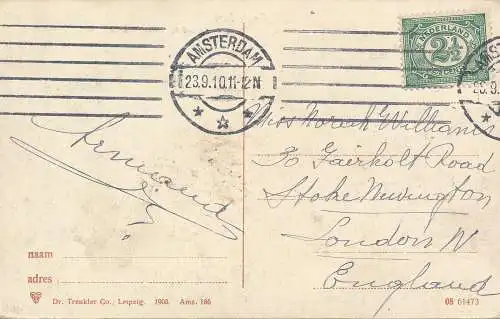 AMSTERDAM
23.9.10.11-12N
NEDERLAND
2½
CENT
Miss Norah Williams
30 Fairholt Road
Stoke Newington
London N
England
Armand
naam
adres
Dr. Trenkler Co., Leipzig. 1906. Ams. 186
08 61473